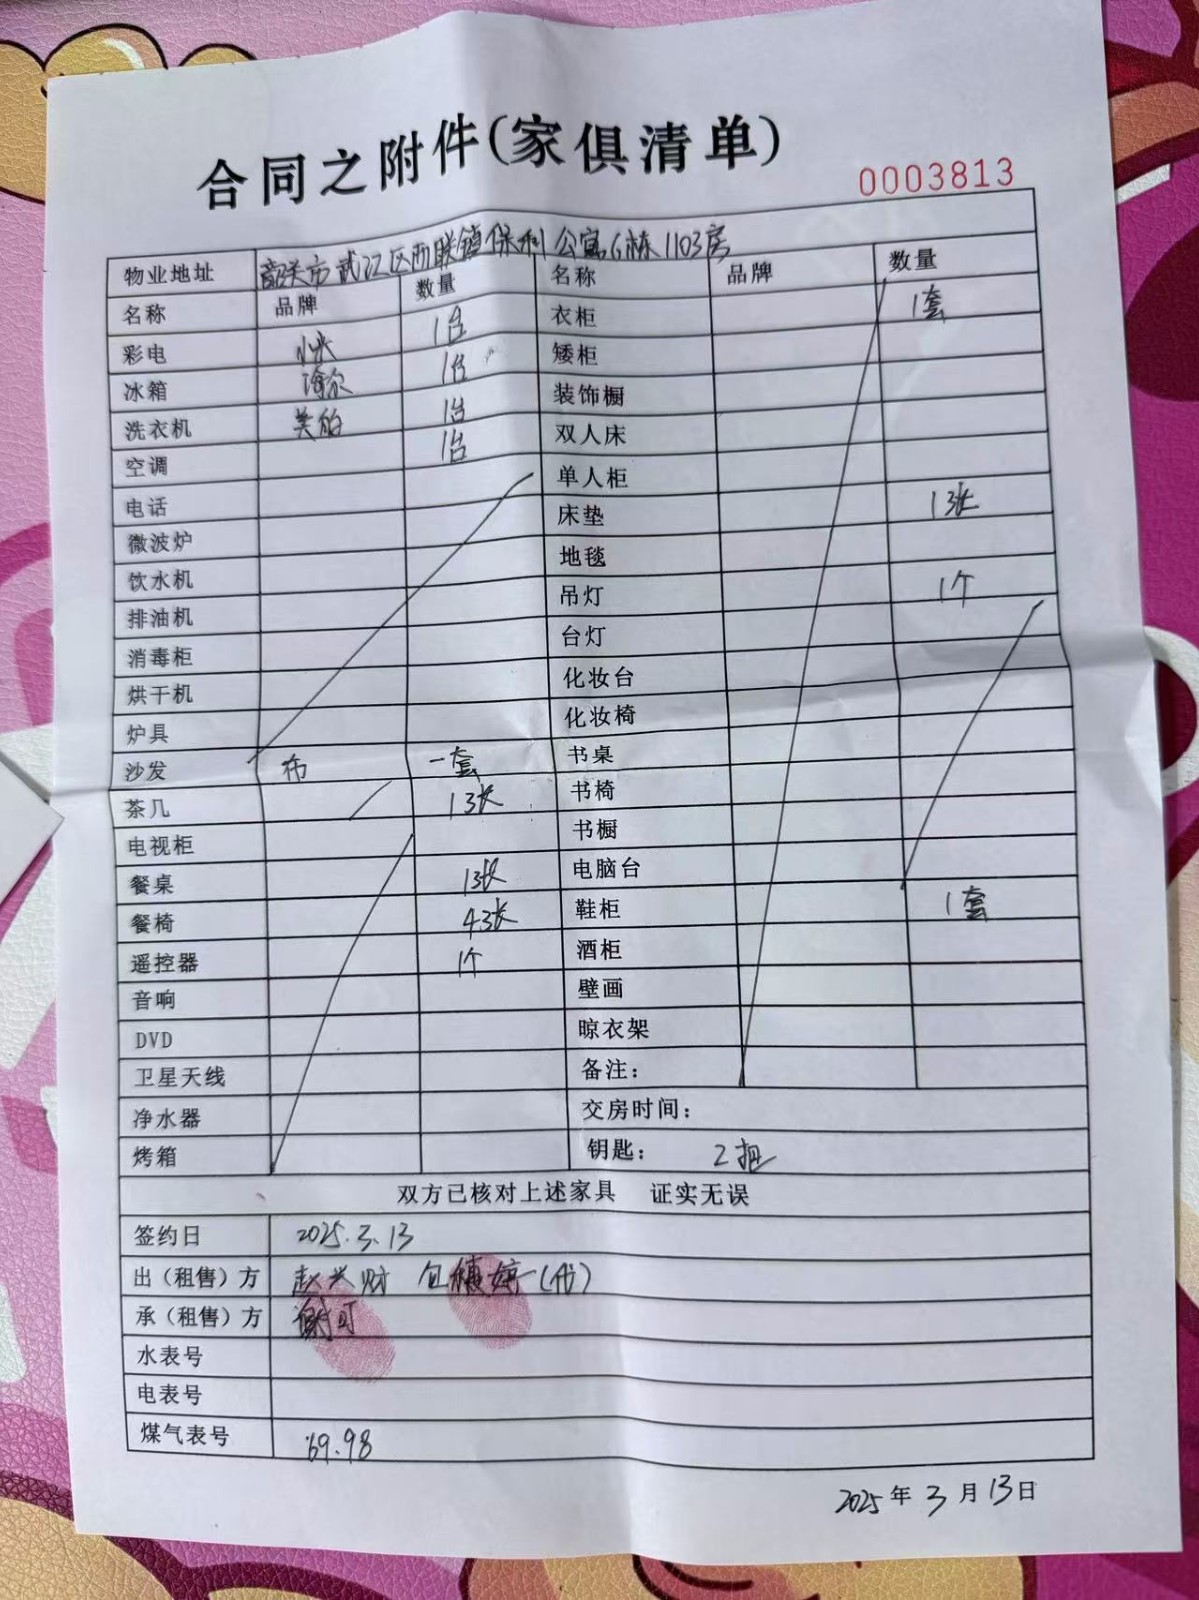 合同之附件(家俱清单)
0003813
物业地址 韶关市武江区西联镇保利公寓6栋1103房
名称 品牌 数量 名称 品牌 数量
彩电 小米 1台 衣柜 1套
冰箱 海尔 1台 矮柜
洗衣机 美的 1台 装饰橱
空调 1台 双人床
电话 单人柜
微波炉 床垫 1张
饮水机 地毯
排油机 吊灯 1个
消毒柜 台灯
烘干机 化妆台
炉具 化妆椅
沙发 布 一套 书桌
茶几 1张 书椅
电视柜 书橱
餐桌 1张 电脑台
餐椅 4张 鞋柜 1套
遥控器 1个 酒柜
音响 壁画
DVD 晾衣架
卫星天线 备注:
净水器 交房时间:
烤箱 钥匙: 2把
双方已核对上述家具 证实无误
签约日 2025.3.13
出(租售)方 赵兴财 包穗婷(代)
承(租售)方 谢可
水表号
电表号
煤气表号 69.98
2025年3月13日